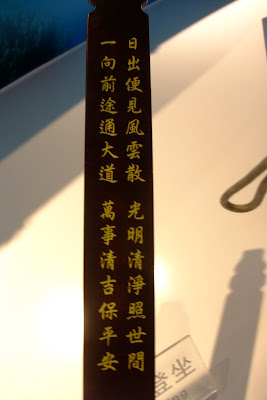 日出便見風雲散 光明清淨照世間
一向前途通大道 萬事清吉保平安
登坐